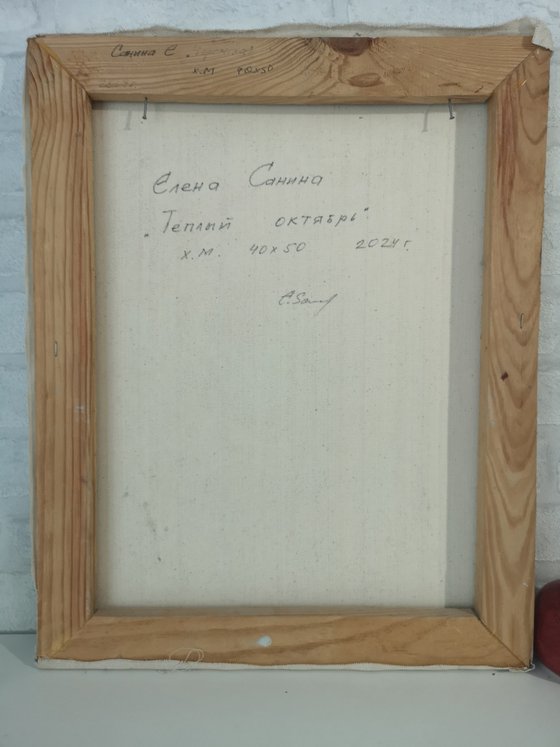 Санина Е
х.м 40х50
Елена Санина
„Теплый октябрь"
х.м. 40х50 2024 г.